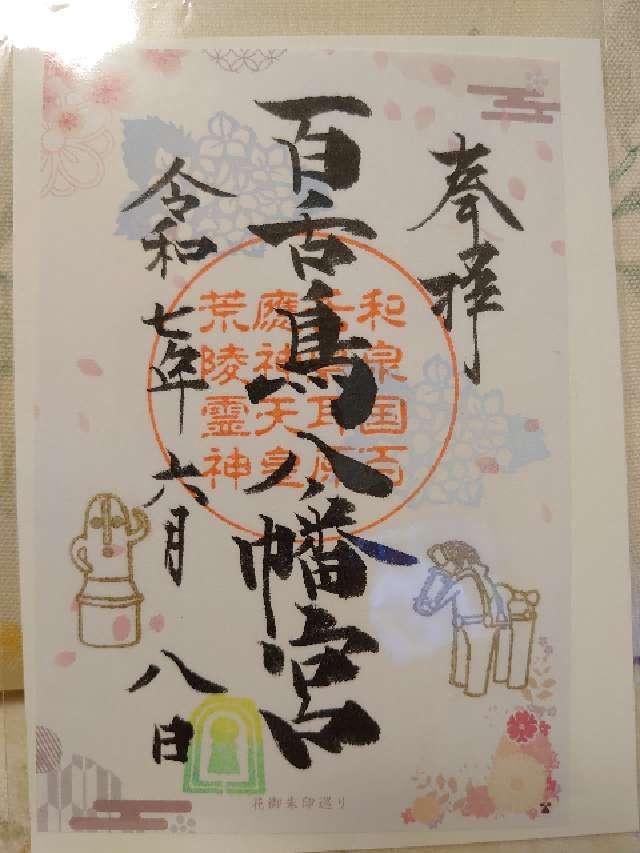 奉拝
百舌鳥八幡宮
和泉国百
舌鳥耳原
應神天皇
荒陵霊神
令和七年六月八日
花御朱印巡り